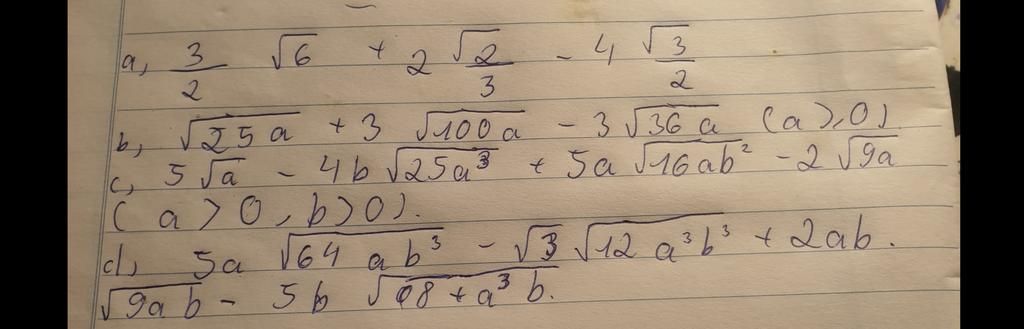 a, 3/2 √6 + 2 √2/3 - 4 √3/2
b, √25a + 3 √100a - 3 √36a (a ≥ 0)
c, 5√a - 4b √25a³ + 5a √16ab² - 2 √9a
(a > 0, b > 0).
d, 5a √64ab³ - √3 √12a³b³ + 2ab.
√9ab - 5b √08+a³b.